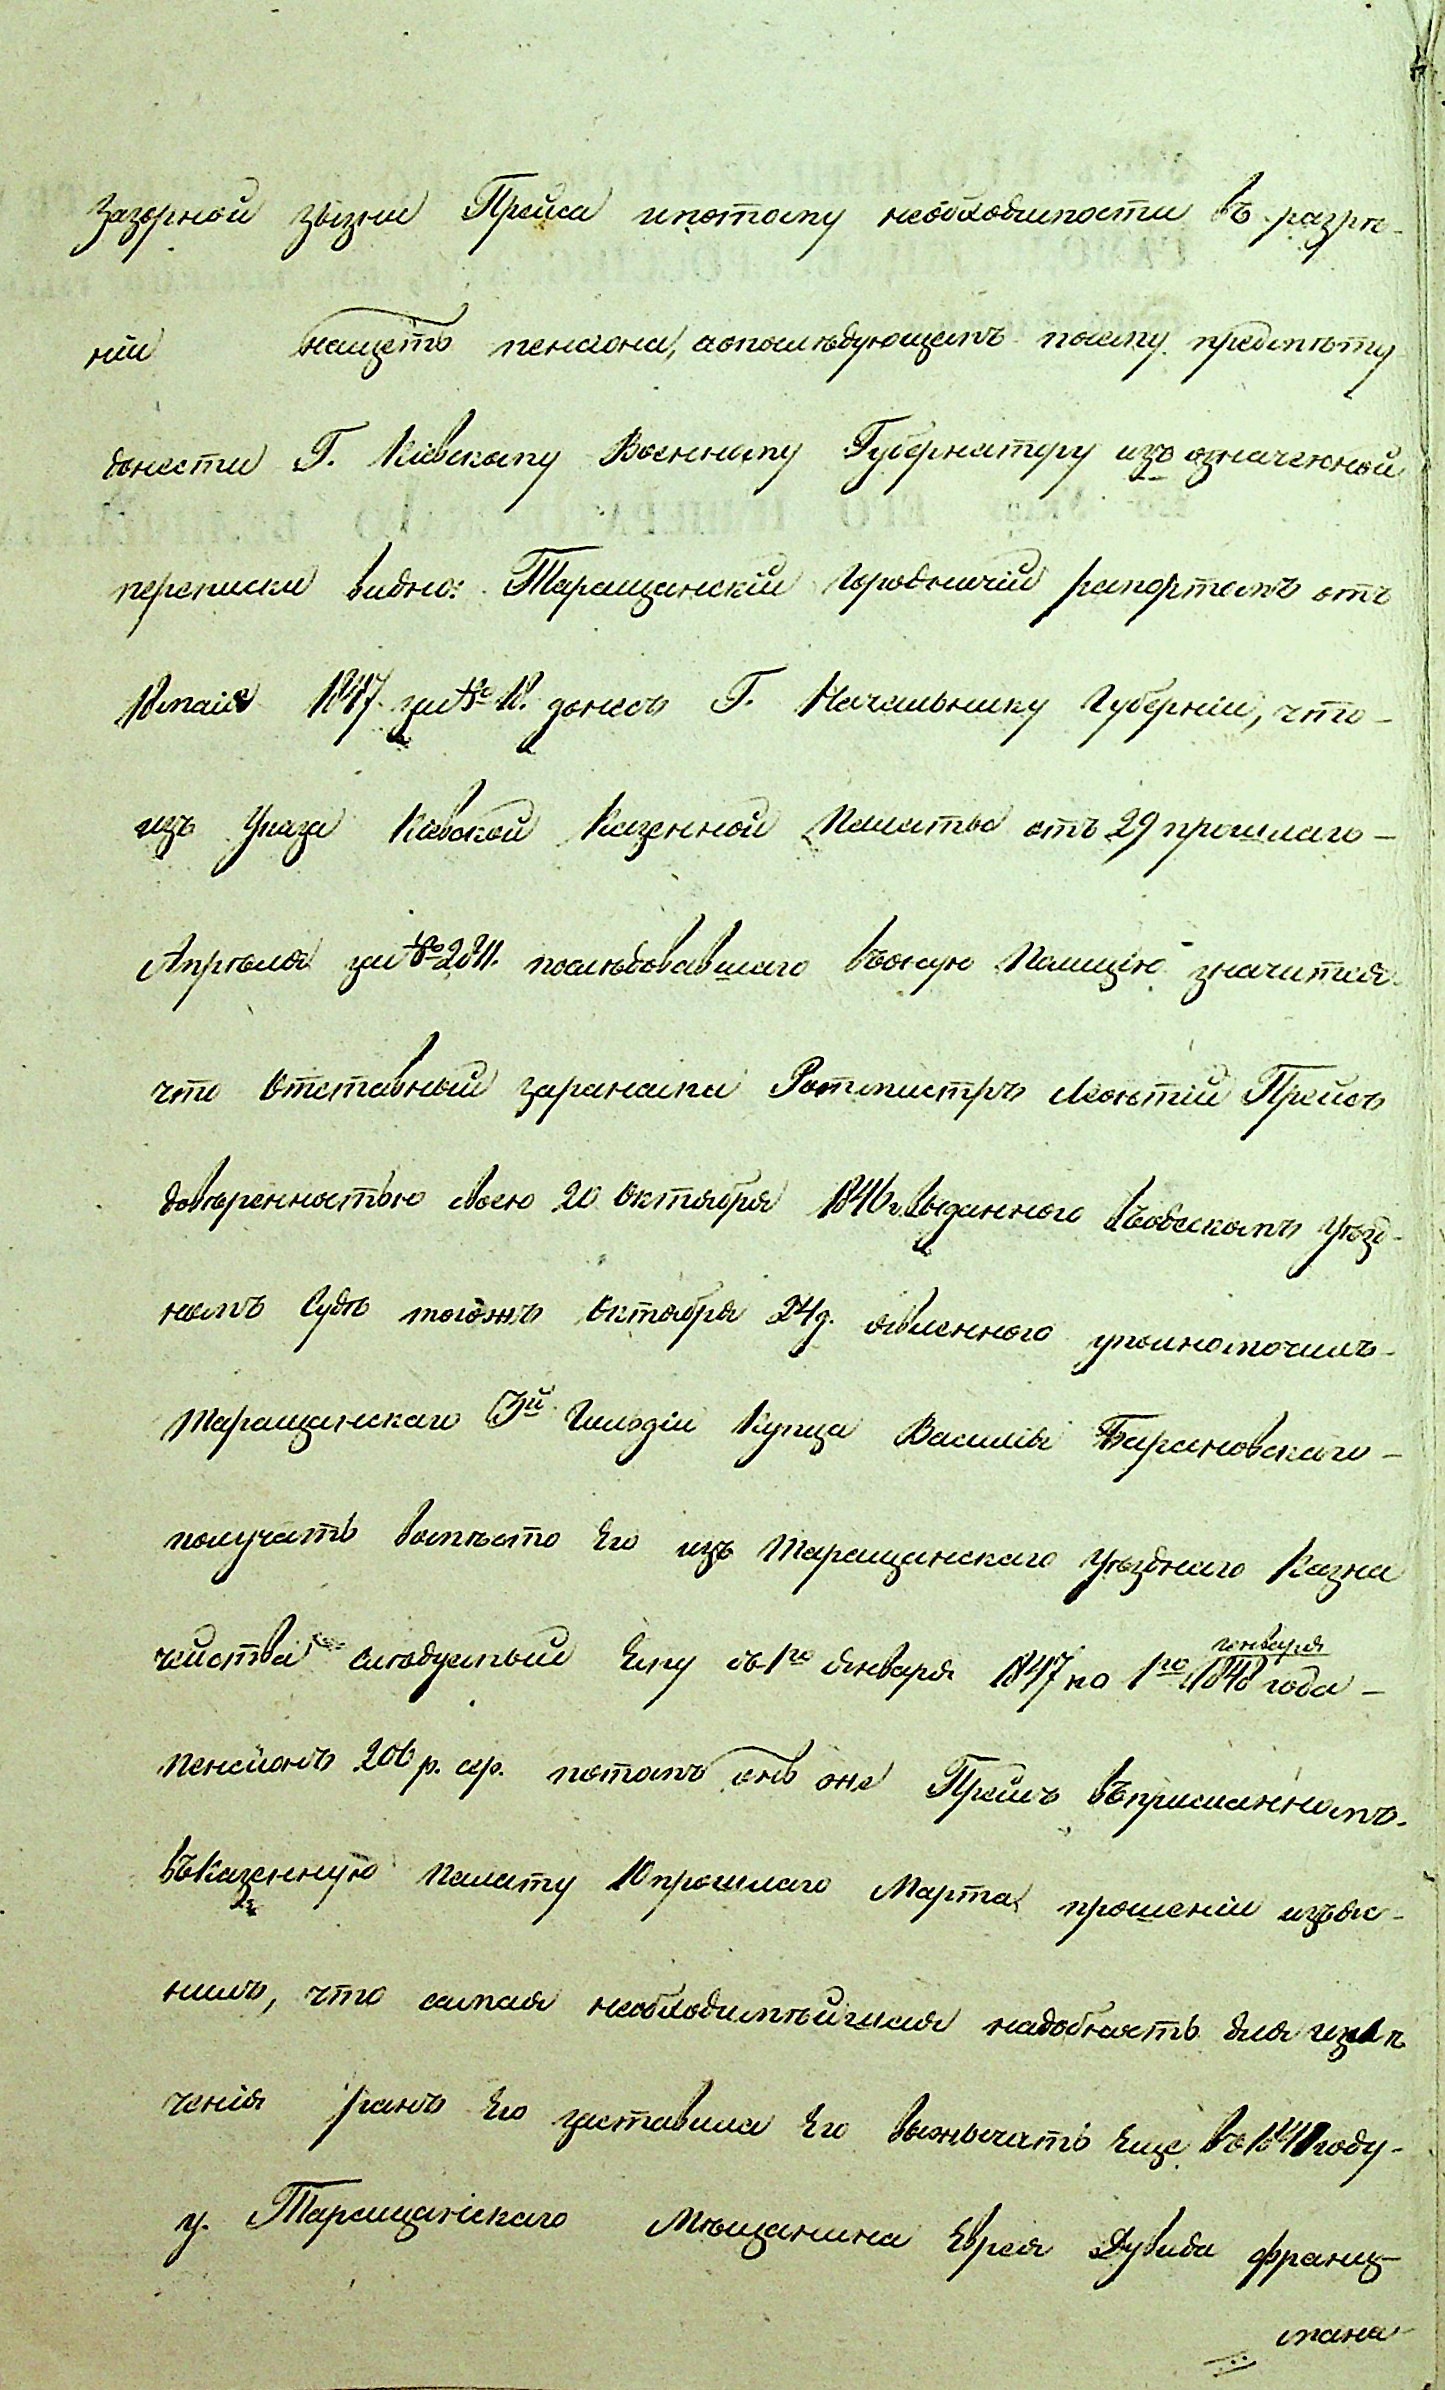 зазорной жизни Прейса ипотому необходимости въ разре-
нiи нащетъ пенсiона, aопоследующемъ посему предмѣту
донести Г. Кiевскому Военному Губернатору изъ означенной
переписки видно: Таращанскiй Городничiй рапортомъ отъ
18 маiя 1847. за № 18. донесъ Г. Начальнику Губернiи, что -
изъ Указа Кiевской Казенной Палаты отъ 29 прошлаго -
Апрѣля за № 2811. последовавшаго въоную Полицiю значится
что Отставный заранами Ротмистръ Леонтiй Прейсъ
довѣренностью своею 20 Октября 1846 г. выданного въодескомъ Уезд-
номъ Судѣ тогожъ Октября 24 д. явленного уполномочилъ -
Таращанскаго 3й Гильдiи Купца Василiя Барановскаго -
получать вмѣсто Его изъ Таращанскаго Уѣзднаго Казна
чейства слѣдуемый Ему съ 1го января 1847 по 1го генваря 1848 года -
пенсiонъ 206 р. сер. потомъ онъ же Прейсъ въприсланномъ
въКазенную Палату 10 прошлаго Марта прошенiи изъяс-
нилъ, что самая необходимѣйшая надобность для излѣ
ченiя ранъ Его заставила Его вынычать Еще въ 1841 году -
у. Таращанскаго Мѣщанина Еврея Дувида Франц-
мана